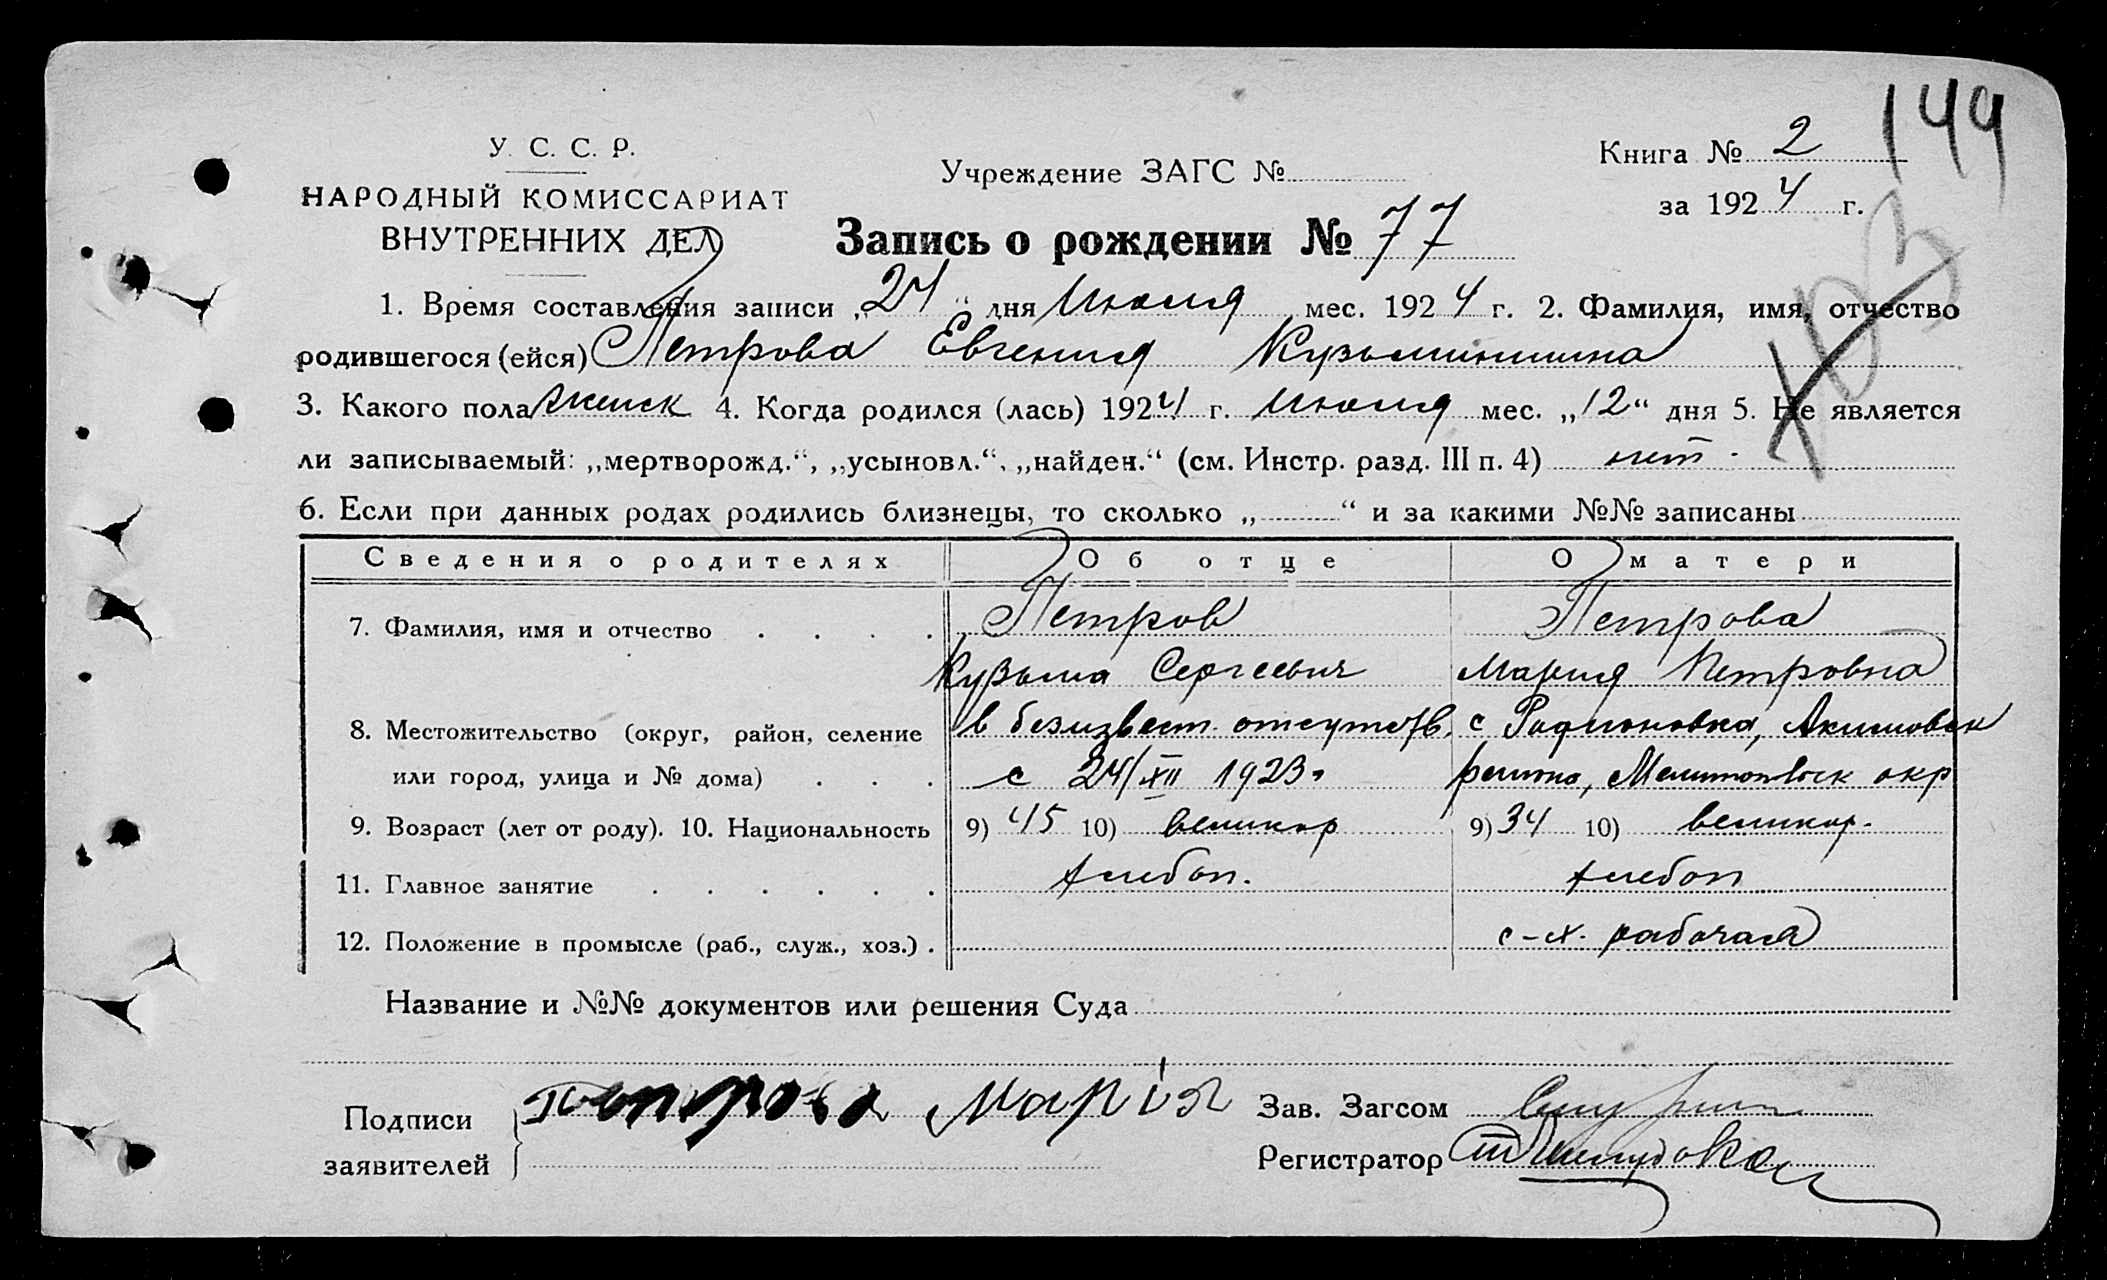 149
У. С. С. Р.
НАРОДНЫЙ КОМИССАРИАТ
ВНУТРЕННИХ ДЕЛ
Учреждение ЗАГС №
Книга № 2
за 1924 г.
103
Запись о рождении № 77
1. Время составления записи „24“ дня Июля мес. 1924 г. 2. Фамилия, имя, отчество
родившегося (ейся) Петрова Евгения Кузьминишна
3. Какого пола женск 4. Когда родился (лась) 1924 г. Июля мес. „12“ дня 5. Не является
ли записываемый: „мертворожд.“, „усыновл.“, „найден.“ (см. Инстр. разд. III п. 4) нет -
6. Если при данных родах родились близнецы, то сколько „ “ и за какими №№ записаны
Сведения о родителях Об отце О матери
7. Фамилия, имя и отчество . . . . Петров Петрова
Кузьма Сергеевич Мария Петровна
8. Местожительство (округ, район, селение в безизвест. отсутств. с Радионовка, Акимовск
или город, улица и № дома) . . . с 24/XII 1923г района, Мелитопольск окр
9. Возраст (лет от роду). 10. Национальность 9) 45 10) великор 9) 34 10) великор.
11. Главное занятие . . . . . . хлебоп. хлебоп
12. Положение в промысле (раб., служ., хоз.) . с-х. рабочая
Название и №№ документов или решения Суда
Подписи
заявителей
Петрова Марія
Зав. Загсом
Регистратор